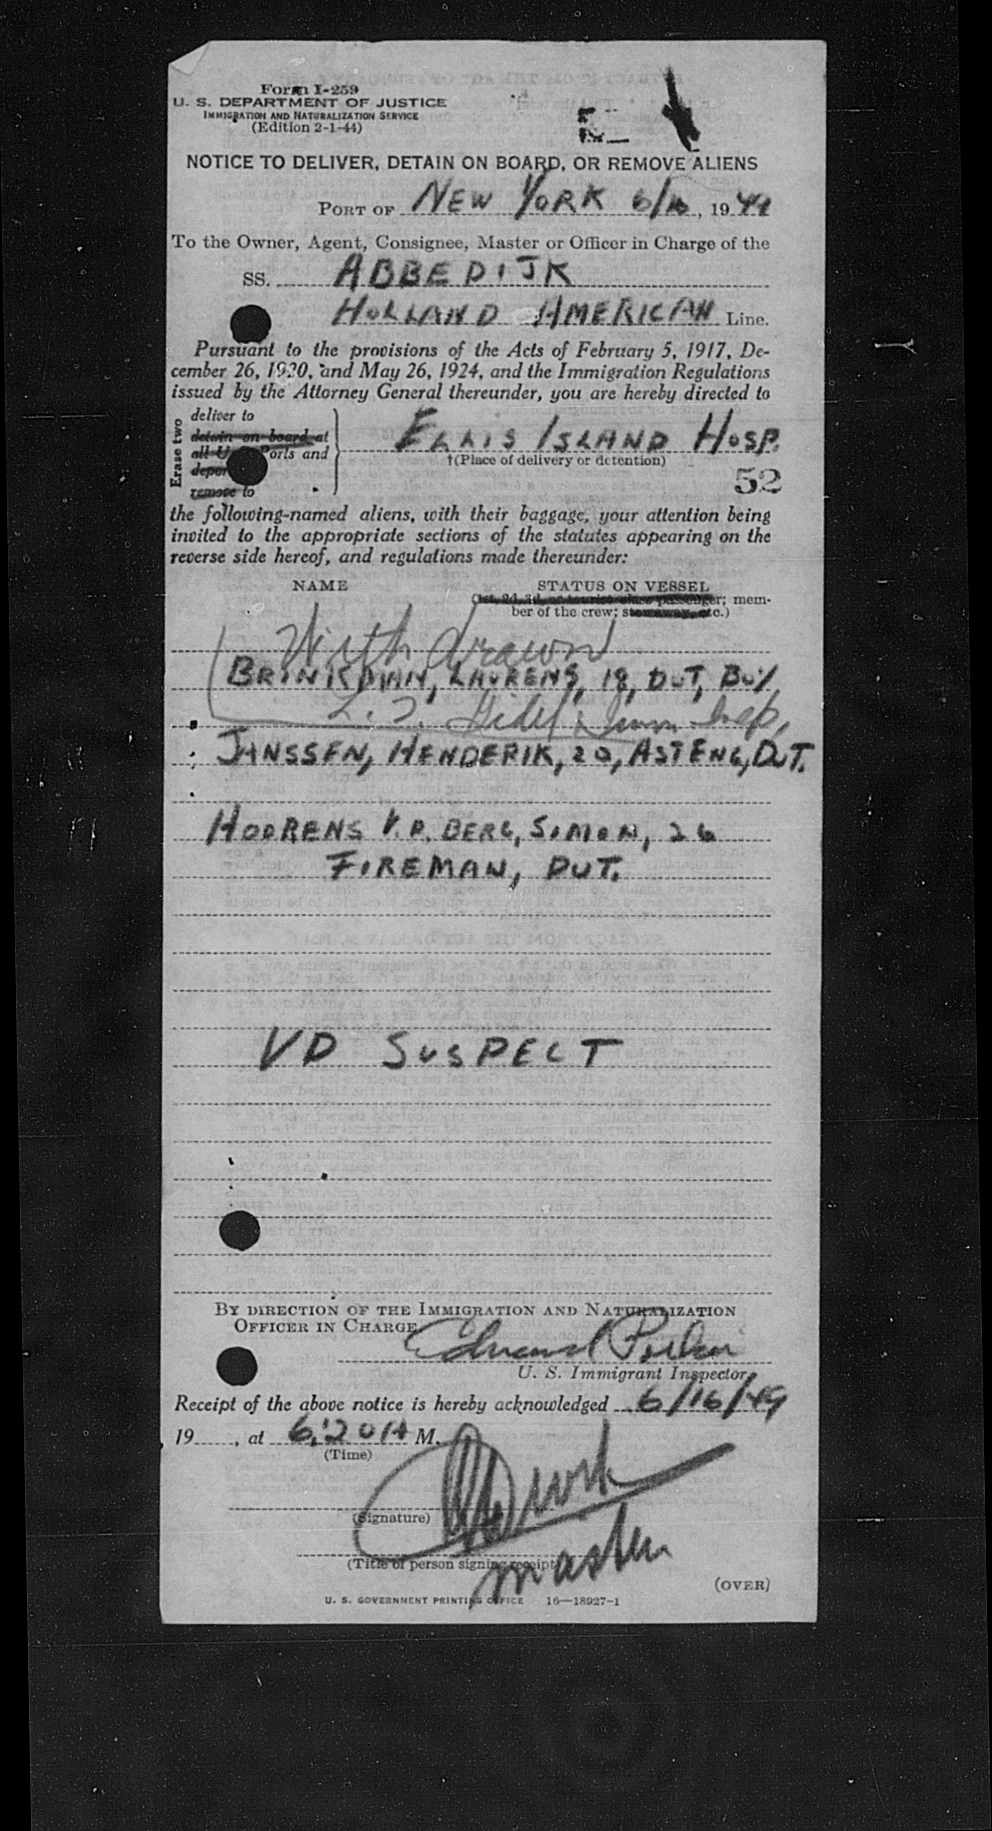 Form I-259
U. S. DEPARTMENT OF JUSTICE
IMMIGRATION AND NATURALIZATION SERVICE
(Edition 2-1-44)
NOTICE TO DELIVER, DETAIN ON BOARD, OR REMOVE ALIENS
PORT OF NEW YORK 6/16, 1949
To the Owner, Agent, Consignee, Master or Officer in Charge of the
SS. ABBEDIJK
HOLLAND AMERICAN Line.
Pursuant to the provisions of the Acts of February 5, 1917, De-
cember 26, 1920, and May 26, 1924, and the Immigration Regulations
issued by the Attorney General thereunder, you are hereby directed to
Erase two
deliver to
detain on board at
all U Ports and
remove to
ELLIS ISLAND HOSP.
†(Place of delivery or detention)
52
the following-named aliens, with their baggage, your attention being
invited to the appropriate sections of the statutes appearing on the
reverse side hereof, and regulations made thereunder:
NAME STATUS ON VESSEL
(1st, 2d, 3d, or tourist class passenger; mem-
ber of the crew; stowaway, etc.)
Withdrawn
BRINKMAN, LAURENS, 18, DUT, BOY
Insp.
JANSSEN, HENDERIK, 20, AST ENG, DUT.
HOORENS V.D. BERG, SIMON, 26
FIREMAN, DUT.
VD SUSPECT
BY DIRECTION OF THE IMMIGRATION AND NATURALIZATION
OFFICER IN CHARGE
Edward
U. S. Immigrant Inspector
Receipt of the above notice is hereby acknowledged 6/16/49
19, at 6:20 A M.
(Time)
(Signature)
master
(Title of person signing receipt)
(OVER)
U. S. GOVERNMENT PRINTING OFFICE 16—18927-1